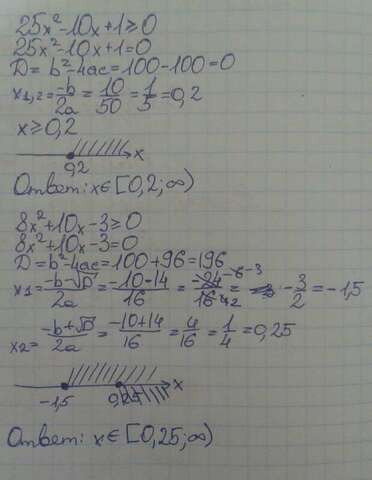 25x²-10x+1≥0
25x²-10x+1=0
D=b²-4ac=100-100=0
x₁,₂=-b/2a=10/50=1/5=0,2
x≥0,2
x
0,2
Ответ: x∈[0,2;∞)
8x²+10x-3≥0
8x²+10x-3=0
D=b²-4ac=100+96=196
x₁=-b-√D/2a=-10-14/16=-24/16=-3/2=-1,5
x₂=-b+√D/2a=-10+14/16=4/16=1/4=0,25
x
-1,5
Ответ: x∈[0,25;∞)